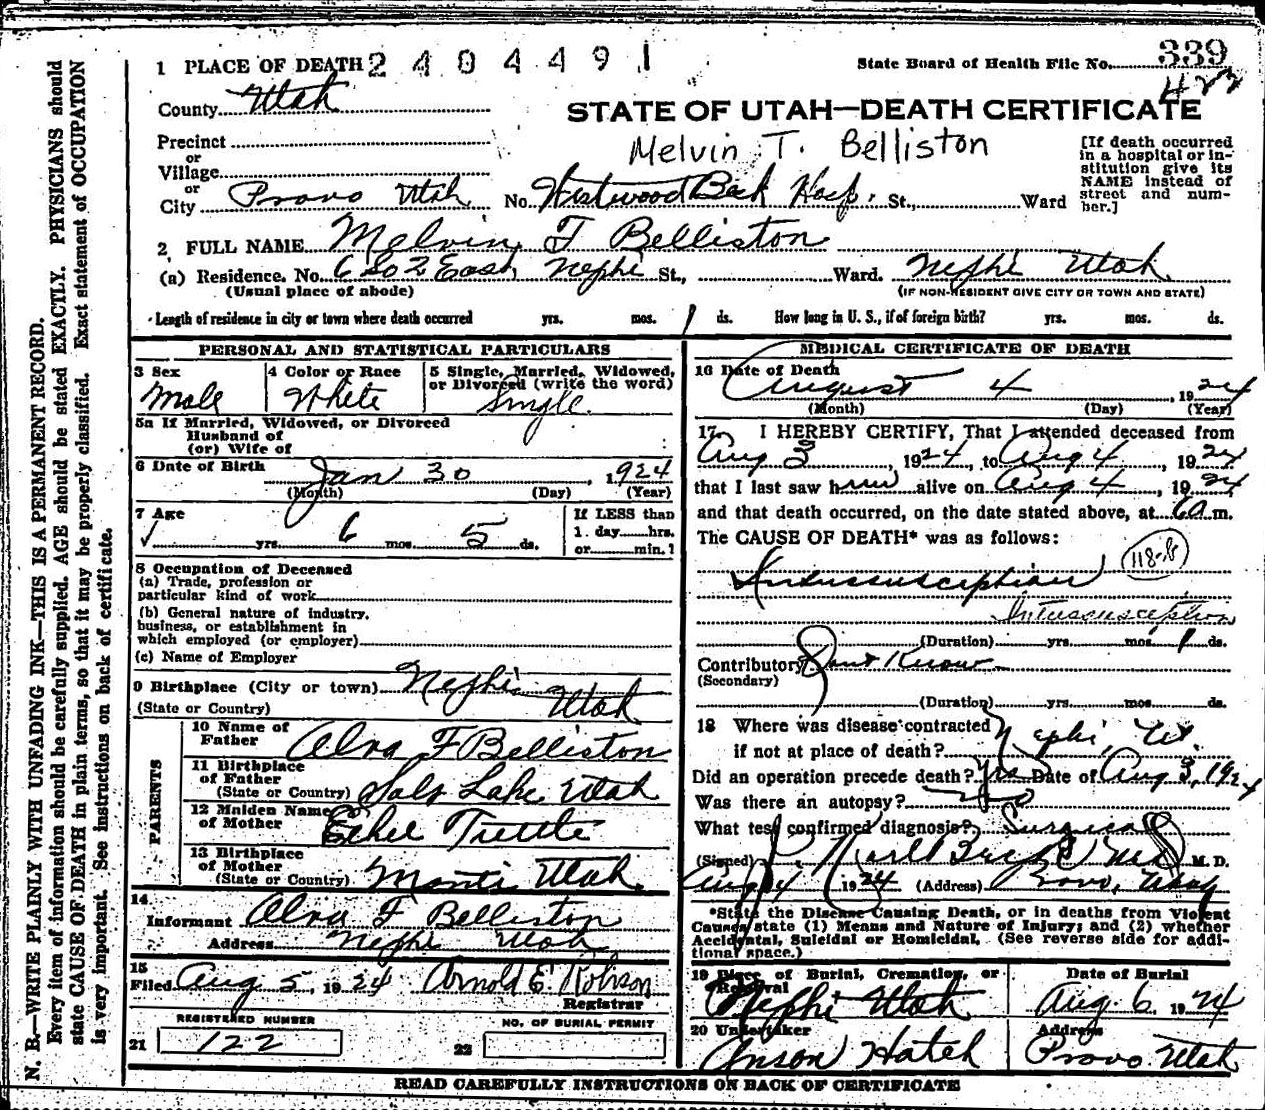 1 PLACE OF DEATH 2404491
State Board of Health File No. 339
422
County Utah
STATE OF UTAH—DEATH CERTIFICATE
Precinct
Melvin T. Belliston
or
Village
or
City Provo Utah No. Hosp. St., Ward
[If death occurred
in a hospital or in-
stitution give its
NAME instead of
street and num-
ber.]
2 FULL NAME Melvin T Belliston
(a) Residence. No. 2 East, Nephi St., Ward. Nephi Utah
(Usual place of abode)
(IF NON-RESIDENT GIVE CITY OR TOWN AND STATE)
Length of residence in city or town where death occurred yrs. mos. 1 ds. How long in U. S., if of foreign birth? yrs. mos. ds.
PERSONAL AND STATISTICAL PARTICULARS
3 Sex
Male
4 Color or Race
White
5 Single, Married, Widowed,
or Divorced (write the word)
Single.
5a If Married, Widowed, or Divorced
Husband of
(or) Wife of
6 Date of Birth Jan 30, 1924
(Month) (Day) (Year)
7 Age
yrs. 6 mos. 5 ds.
If LESS than
1 day hrs.
or min.?
8 Occupation of Deceased
(a) Trade, profession or
particular kind of work
(b) General nature of industry,
business, or establishment in
which employed (or employer)
(c) Name of Employer
9 Birthplace (City or town) Nephi
(State or Country) Utah
PARENTS
10 Name of
Father Alva F Belliston
11 Birthplace
of Father
(State or Country) Salt Lake Utah
12 Maiden Name
of Mother Ethel Tuttle
13 Birthplace
of Mother
(State or Country) Manti Utah.
14
Informant Alva F Belliston
Address Nephi Utah
15
Filed Aug 5, 1924 Arnold E. Robison
Registrar
REGISTERED NUMBER
21 122
NO. OF BURIAL PERMIT
22
MEDICAL CERTIFICATE OF DEATH
16 Date of Death
August 4, 1924
(Month) (Day) (Year)
17 I HEREBY CERTIFY, That I attended deceased from
Aug 3, 1924, to Aug 4, 1924
that I last saw him alive on Aug 4, 1924
and that death occurred, on the date stated above, at 6 a m.
The CAUSE OF DEATH* was as follows:
118-B
Intussusception
(Duration) yrs. mos. 1 ds.
Contributory Dont Know
(Secondary)
(Duration) yrs. mos. ds.
18 Where was disease contracted
if not at place of death? Nephi, Ut.
Did an operation precede death? yes Date of Aug 3, 1924
Was there an autopsy? no
What test confirmed diagnosis? Surgical
(Signed) M. D.
Aug 4 1924 (Address) Provo, Utah
*State the Disease Causing Death, or in deaths from Violent
Causes state (1) Means and Nature of Injury; and (2) whether
Accidental, Suicidal or Homicidal. (See reverse side for addi-
tional space.)
19 Place of Burial, Cremation, or
Removal
Nephi Utah
Date of Burial
Aug. 6 1924
20 Undertaker
Anson Hatch
Address
Provo Utah
READ CAREFULLY INSTRUCTIONS ON BACK OF CERTIFICATE
N. B.—WRITE PLAINLY WITH UNFADING INK—THIS IS A PERMANENT RECORD.
Every item of information should be carefully supplied. AGE should be stated EXACTLY. PHYSICIANS should
state CAUSE OF DEATH in plain terms, so that it may be properly classified. Exact statement of OCCUPATION
is very important. See instructions on back of certificate.